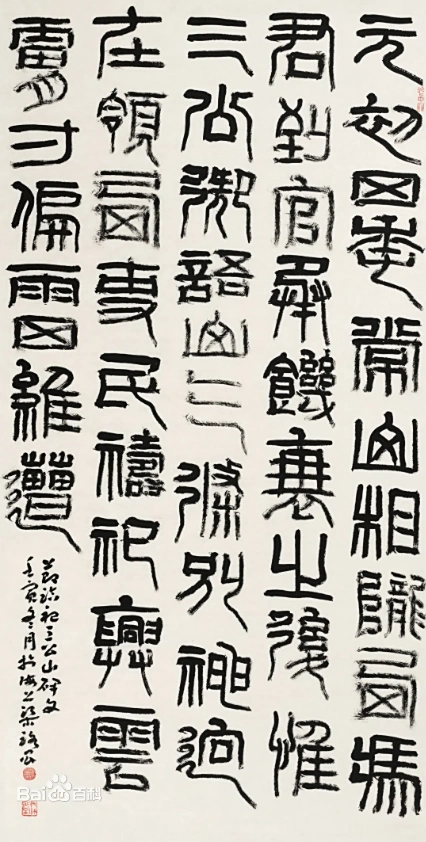 元初四年常山相隴西馮
君到官承饑衰之後惟
三公御語山三條別神迥
在領西吏民禱祀興雲
膚寸偏雨四維遭
節臨祀三公山碑文
壬寅冬月於海上梁
Bai百科